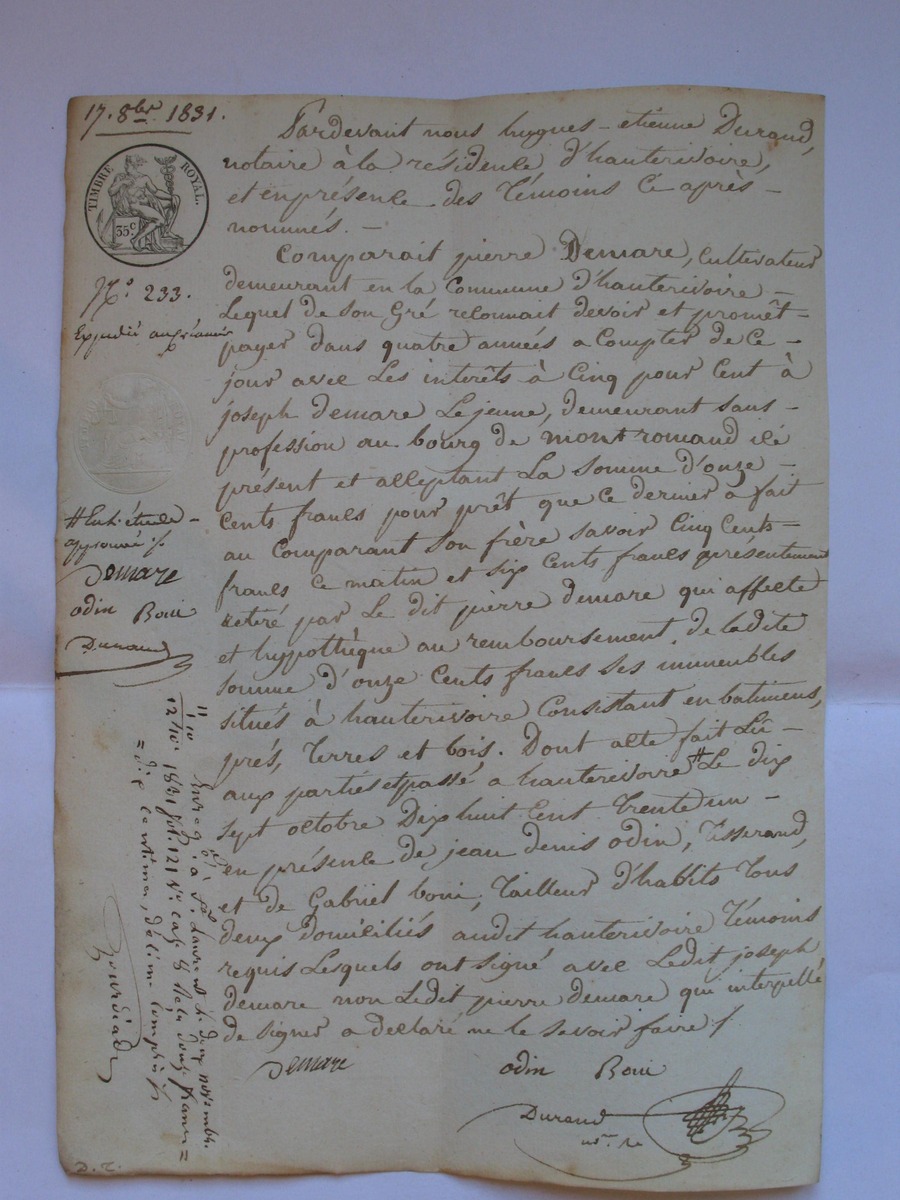 17. 8bre 1831.
TIMBRE ROYAL.
35c
No. 233.
Expédié au créancier
Pardevant nous hugues-etienne Durand,
notaire à la résidence d'hauterivoire,
et en présence des Témoins Ci après-
nommés. -
Comparait pierre Demare, Cultivateur
demeurant en la Commune d'hauterivoire -
Lequel de son Gré reconnait devoir et promêt-
payer dans quatre années a Compter de Ce -
jour avec Les interêts à Cinq pour Cent à
joseph demare Lejeune, demeurant sans -
profession au bourg de montromand ici
présent et acceptant La somme d'onze -
Cents francs pour prêt que Ce dernier a fait
au Comparant son frère savoir Cinq Cents-
francs Ce matin et six Cents francs présentement
retiré par Le dit pierre demare qui affecte
et hyppothèque au remboursement de ladite
somme d'onze Cents francs ses immeubles
situés à hauterivoire Consistant en batimens,
prés, Terres et bois. Dont acte fait Lû -
aux parties et passé a hauterivoire # Le dix
sept octobre Dix huit Cent Trente un -
en présence de jean denis odin, Tisserand,
et de Gabriel boni, Tailleur d'habits Tous
deux domiciliés audit hauterivoire Témoins
requis Lesquels ont signé avec Ledit joseph
demare non Ledit pierre demare qui interpellé
de signer a déclaré ne le savoir faire /
Demare
odin Boni
Durand
nre
# En l'étude -
approuvé ./.
Demare
odin Boni
Durand
11
1,10
12/10
Enreg. à St. Laurent le deux novembre
1831 fol. 121 No. case 8 Reçu douze francs =
= dix centimes, décime compris
Bourdiade
D. T.